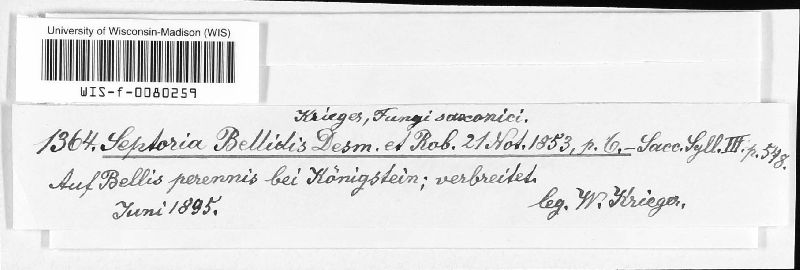 University of Wisconsin-Madison (WIS)
WIS-f-0080259
Krieger, Fungi saxonici.
1364. Septoria Bellidis Desm. et Rob. 21 Not. 1853, p. 6. – Sacc. Syll. III. p. 548.
Auf Bellis perennis bei Königstein; verbreitet.
Juni 1895.
leg. W. Krieger.